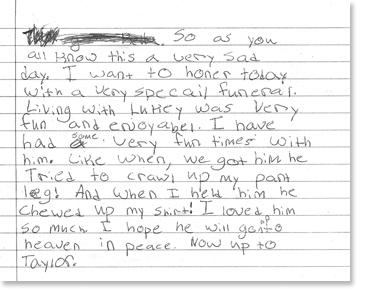 So as you
all know this a very sad
day. I want to honer today
with a very specail funeral.
Living with Lukey was very
fun and enyoyabel. I have
had some very fun times with
him. Like when, we got him he
Tried to crawl up my pant
leg! And when I held him he
chewed up my shirt! I loved him
so much. I hope he will go up to
heaven in peace. Now up to
Taylor.